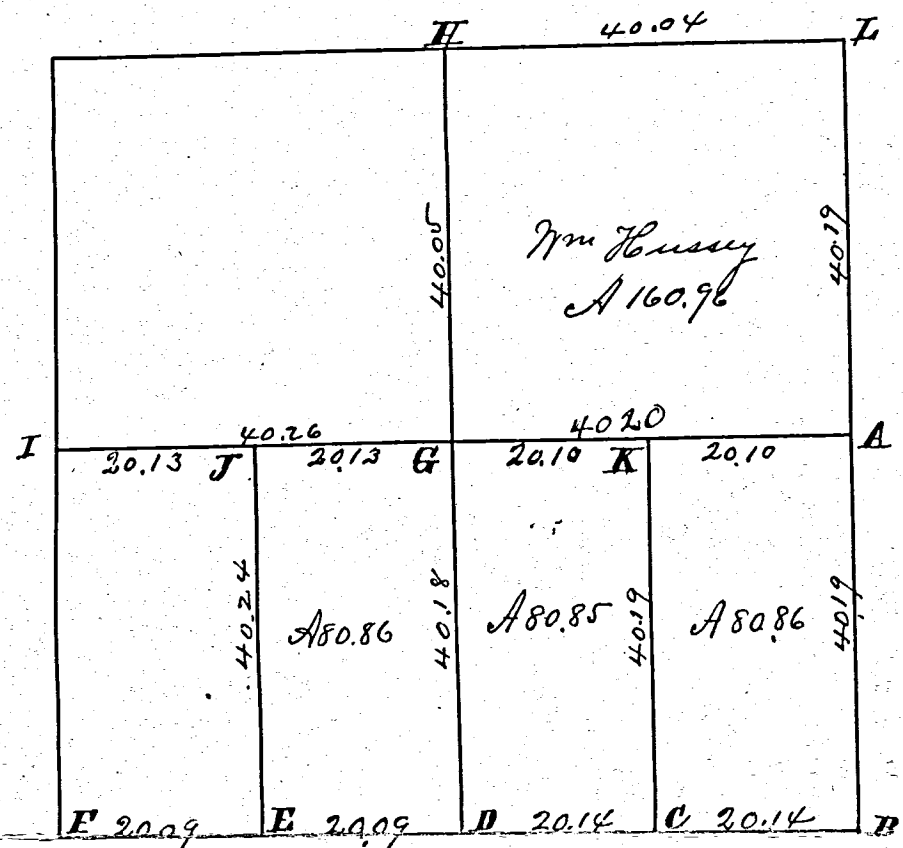 H 40.04 L
40.05
Wm Hussey
A 160.96
40.19
I 40.26 4020 A
20.13 J 20.13 G 20.10 K 20.10
40.24
A80.86
40.18
A80.85
40.19
A80.86
4019
F 20.09 E 20.09 D 20.14 C 20.14 B